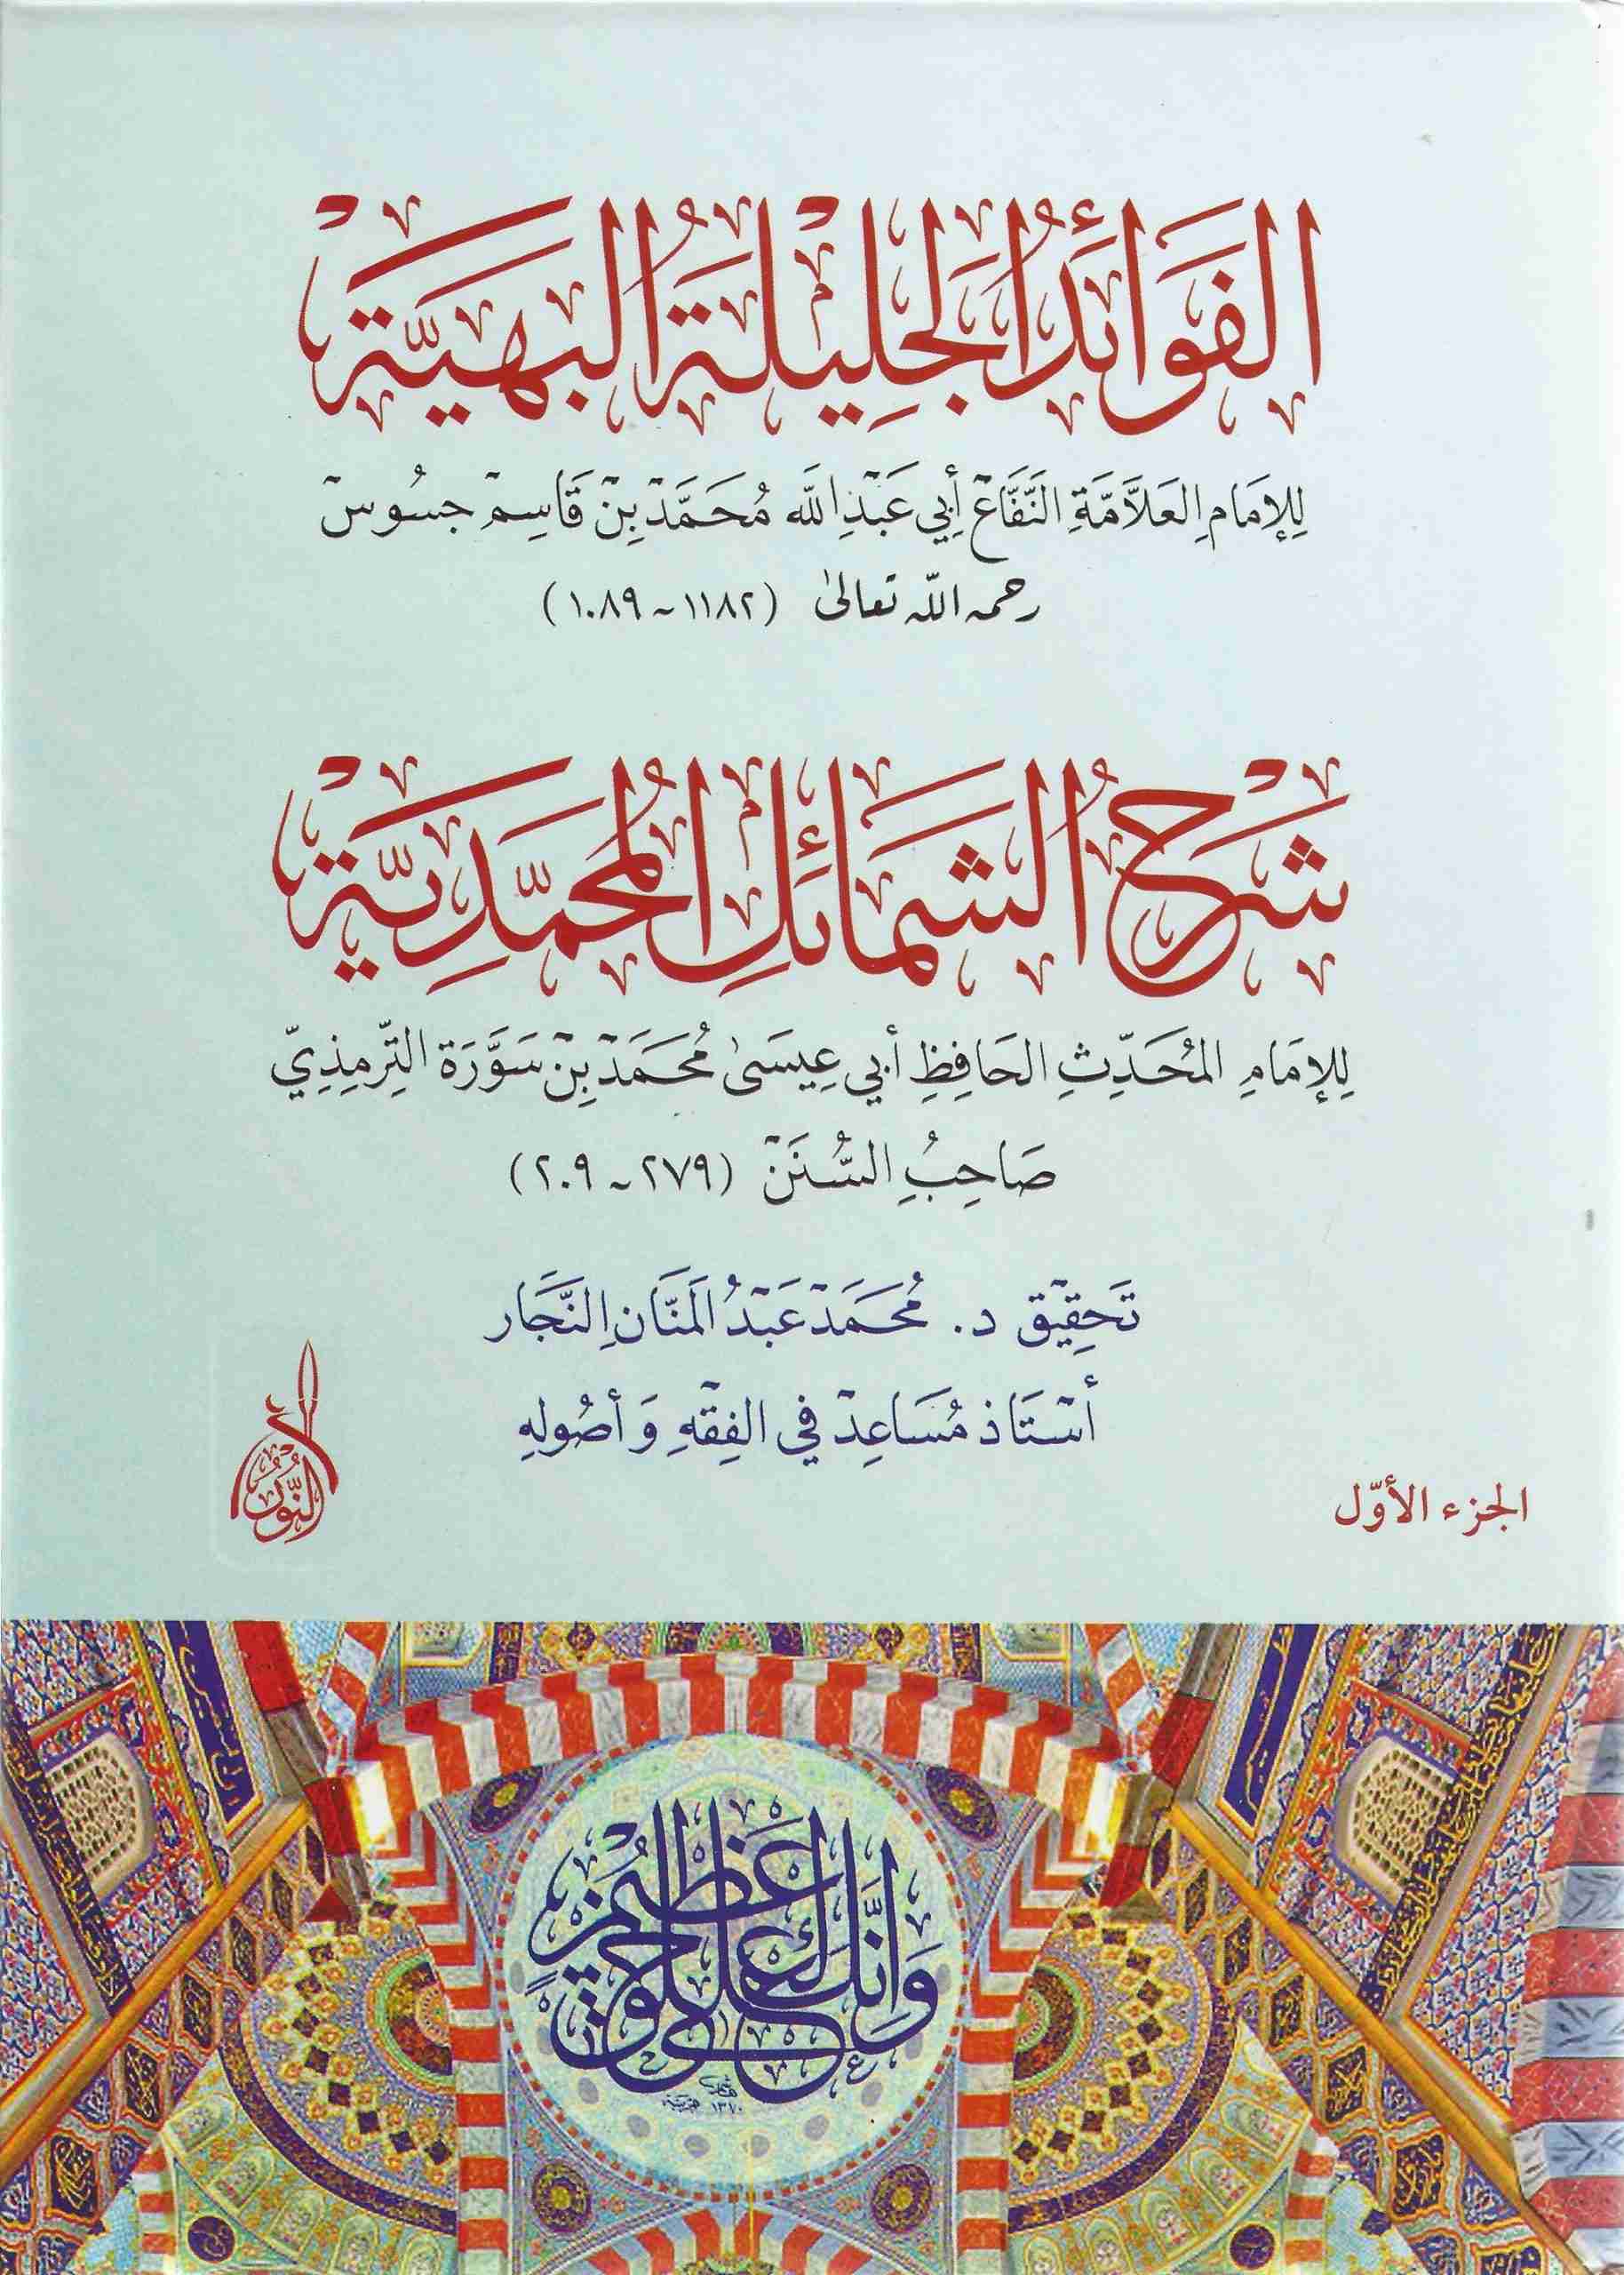 الفَوَائِدُ الجَلِيْلَةُ البَهِيَّةَ
لِلإِمَامِ العَلاَّمَةِ النَّفَّاعْ أَبِي عَبْدِ اللَّه مُحَمَّدْ بِنْ قَاسِمْ جسُوسْ
رحمه الله تعالىٰ (١١٨٢ ~ ١٠٨٩)
شَرْحُ الشَّمَائِلِ المُحَمَّدِيَّةَ
لِلإِمَامِ المُحَدِّثِ الحَافِظِ أَبِي عِيسَىٰ مُحَمَدْ بِنْ سَوَّرَة التِّرمِذِيّ
صَاحِبُ السُّنَنْ (٢٧٩ ~ ٢٠٩)
تَحقِيْق د. مُحَمَدْ عَبْدُ المَنَّانِ النَّجَار
أسْتَاذ مُسَاعِدْ فِي الفِقْهِ وَأصُولِهِ
النُّورُ
الجزء الأوّل
وَإِنَّكَ لَعَلَى خُلُقٍ عَظِيمٍ